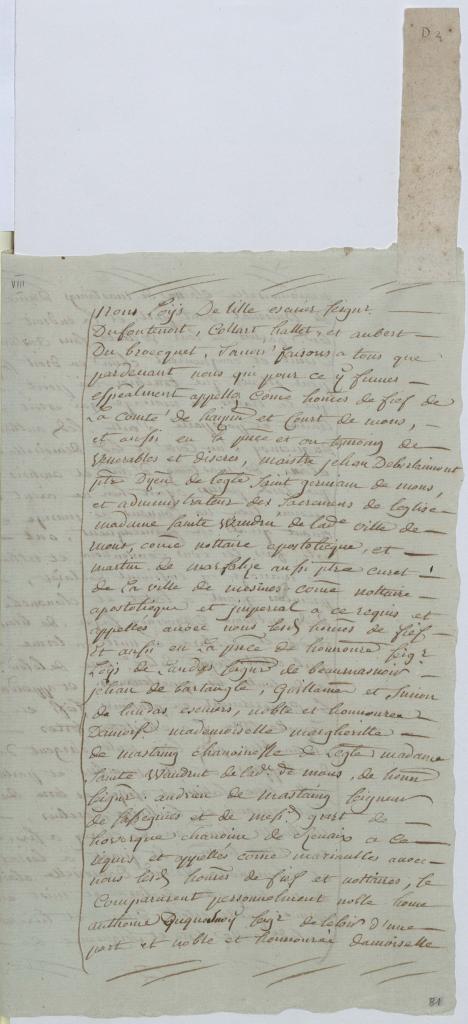 D 2
VIII
Nous Loÿs De lille escuier seigr
Dufontenort, Collart hallet, et aubert
Du broecquet, Savoir faisons a tous que
pardevant nous qui pour ce ÿ fumes
espealment appellez come homes de fief de
La comté de haÿnn et Court de mons,
et aussi en la pnce et ou tesmoing de
venerables et discres, maistre jehan Deberlaimont
pbre Dÿen de legle saint germain de mons,
et administrateur des sacremens de leglise
madame sainte Waudru de lade ville de
mons, come nottaire apostolicque, et
martin de aussi pbre curet
de la ville de mesines come nottaire
apostolicque et imperial a ce requis et
appellez avoec nous lesd homes de fief
et aussi en La pnce de honnouré seigr
Loÿs de Landas seigr de beaumanoir
jehan de bartangle, Guillame et Simon
de landas escuiers, noble et honnourée
Damoise mademoiselle margheritte
de mastaing chanoinesse de Legle madame
sainte Waudrut de lade de mons, de honn
seigr andrieu de mastaing seigneur
de sassegnies et de messe grart de
hovergne chanoine de Renaix a ce
requis et appellés come marinables avoec
nous lesd homes de fief et nottaires, se
Comparurent personnelment noble home
anthoine seigr deleloir d'une
part et noble et honnourée damoiselle
81